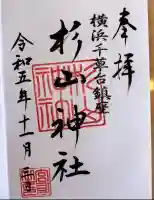 奉拝
横浜千草台鎮座
杉山神社
令和五年十一月